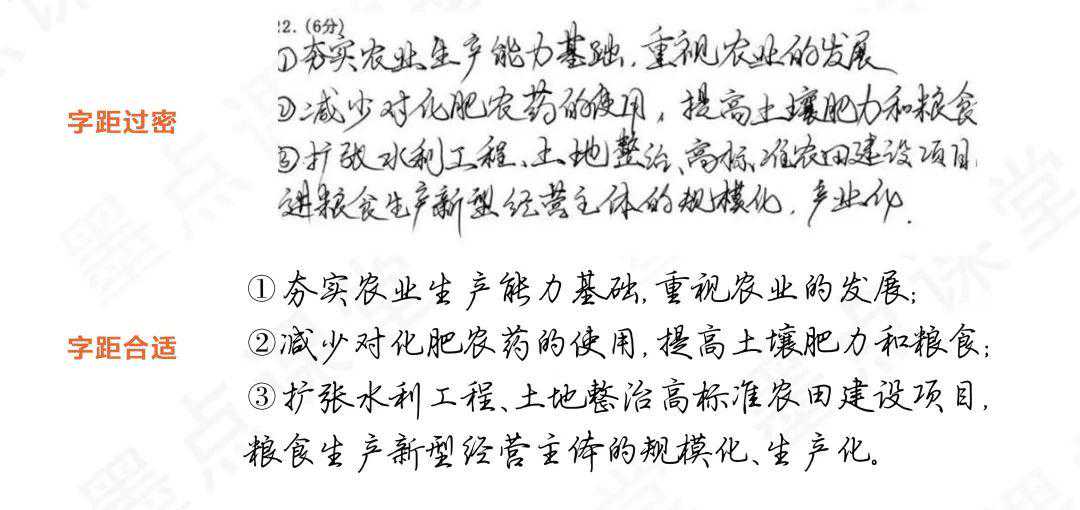 12.(6分)
①夯实农业生产能力基础,重视农业的发展
字距过密
②减少对化肥农药的使用,提高土壤肥力和粮食
③扩张水利工程、土地整治、高标准农田建设项目,
进粮食生产新型经营主体的规模化,产业化.
①夯实农业生产能力基础,重视农业的发展;
字距合适
②减少对化肥农药的使用,提高土壤肥力和粮食;
③扩张水利工程、土地整治高标准农田建设项目,
粮食生产新型经营主体的规模化、生产化。
墨点课堂